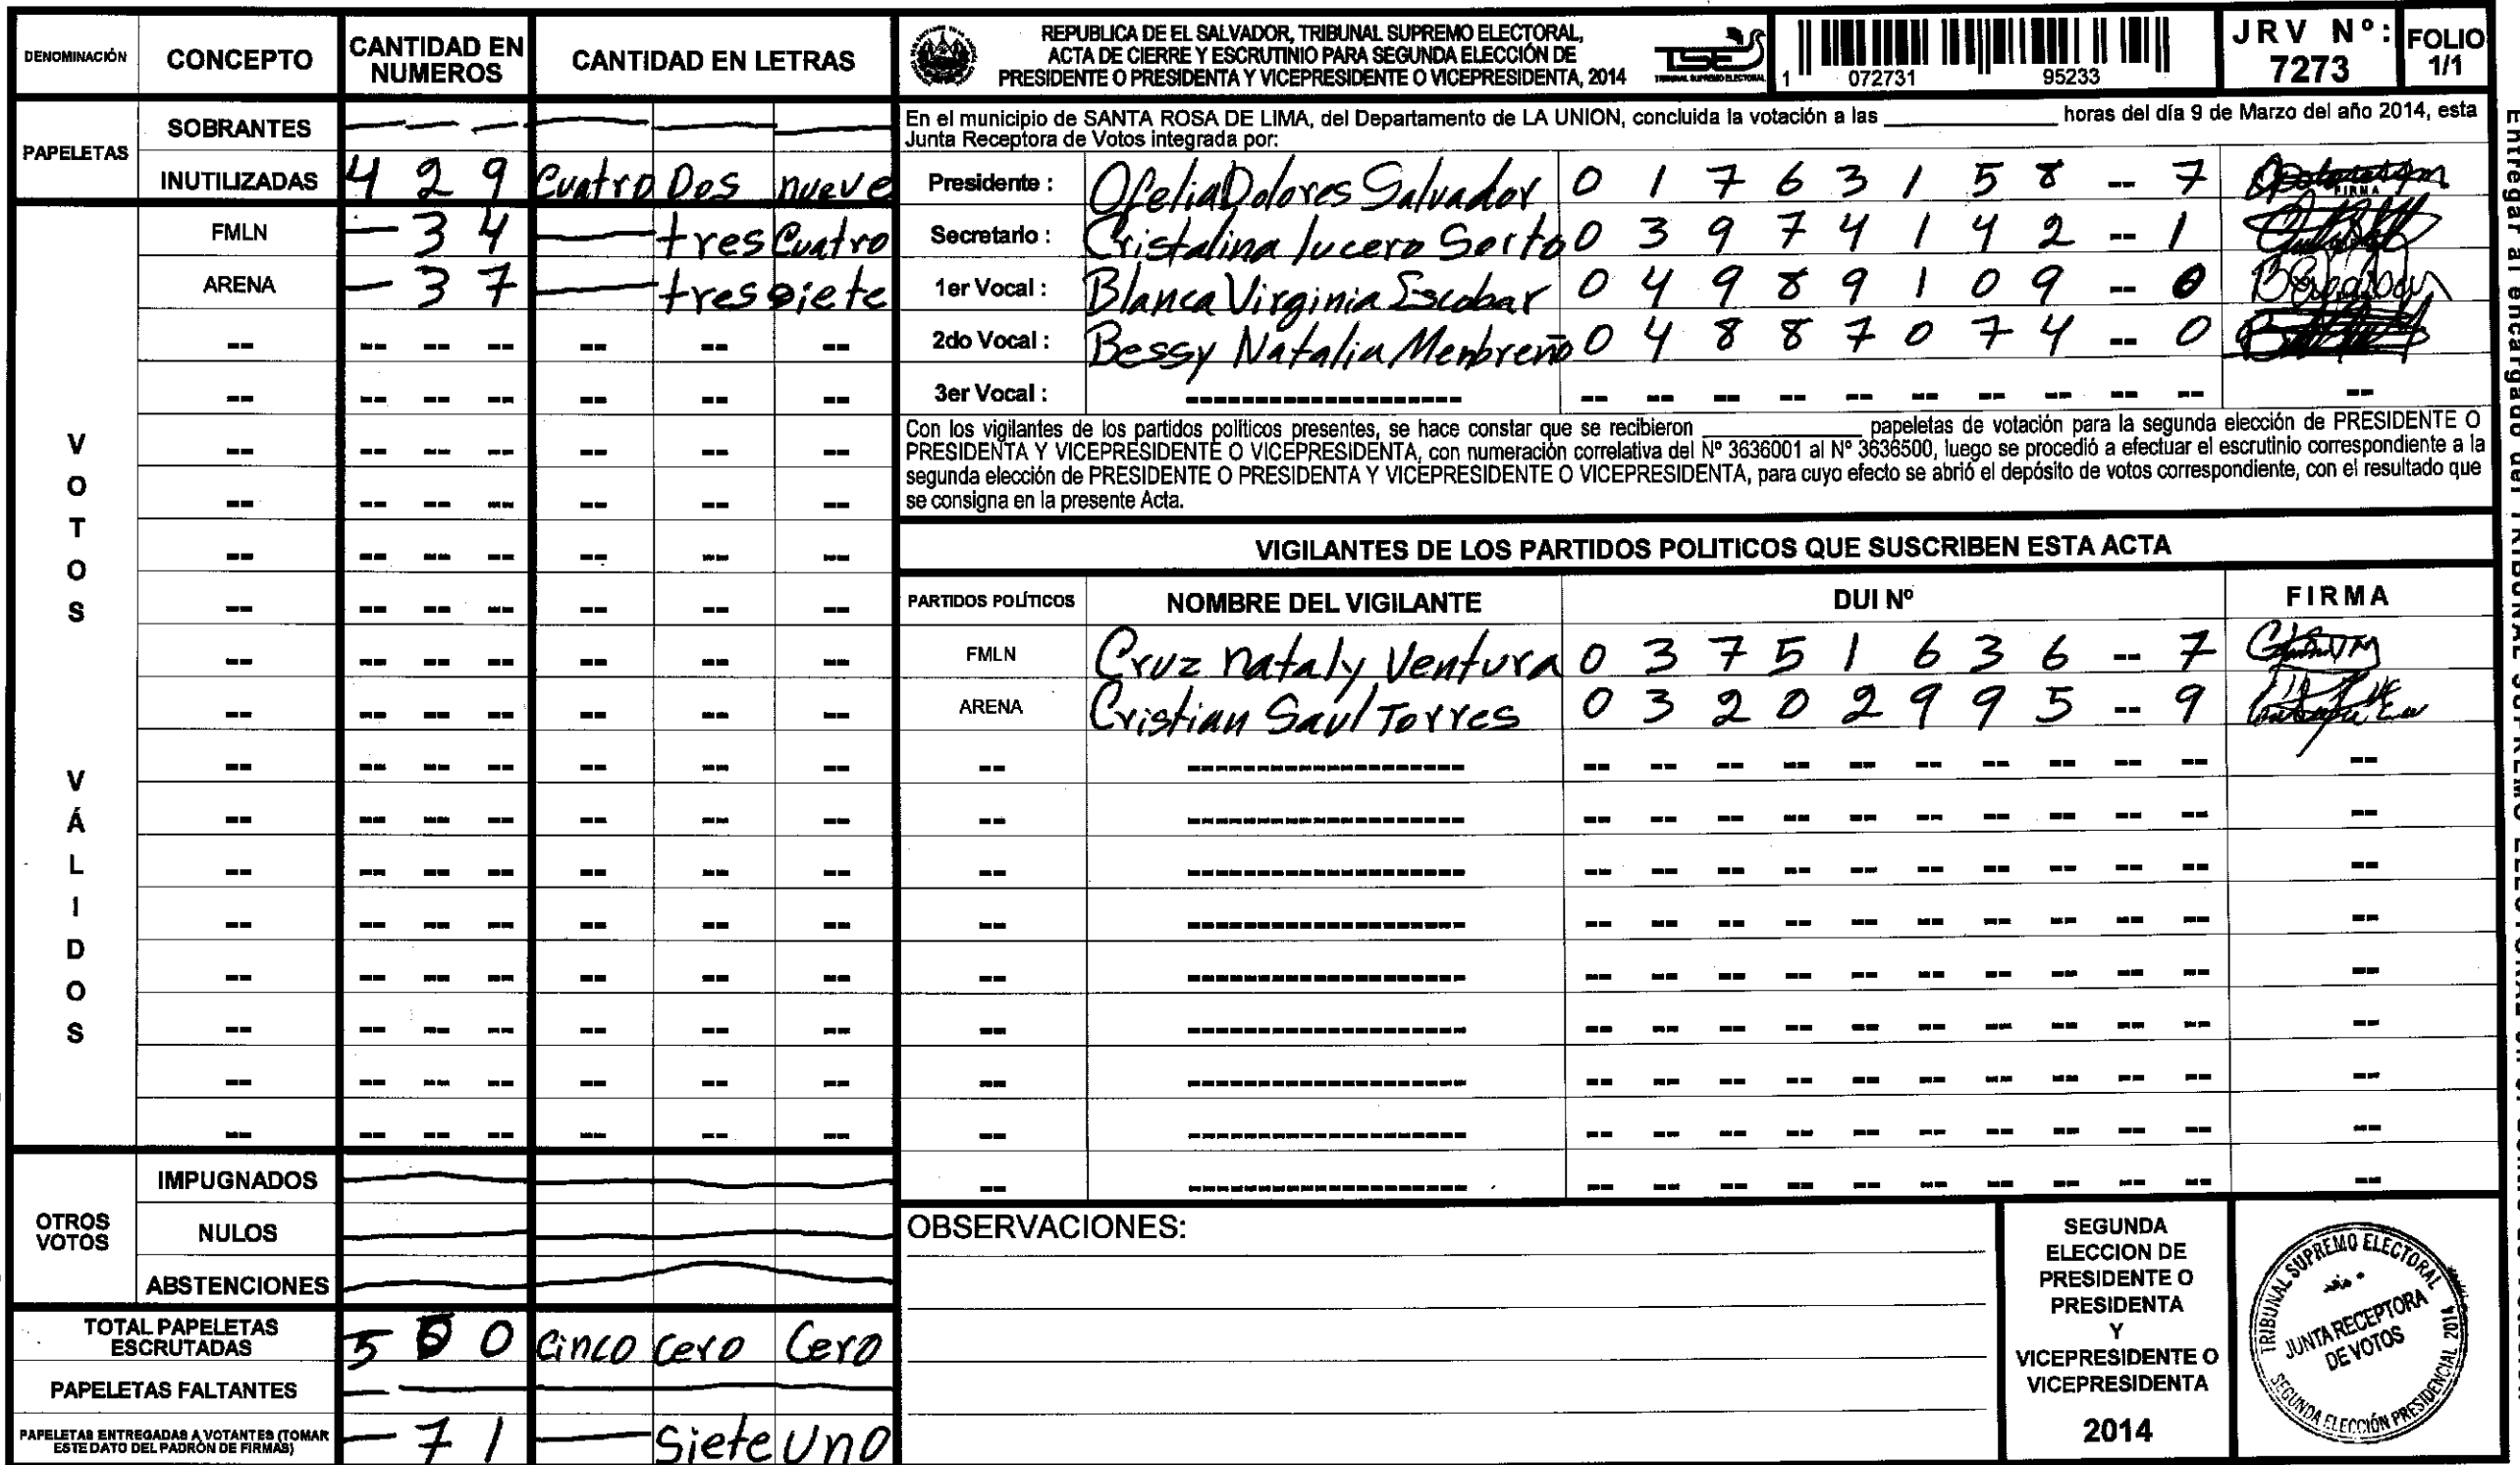 DENOMINACIÓN CONCEPTO CANTIDAD EN NUMEROS CANTIDAD EN LETRAS
PAPELETAS
SOBRANTES
INUTILIZADAS 4 2 9 Cuatro Dos nueve
VOTOS VÁLIDOS
FMLN 3 4 tres Cuatro
ARENA 3 7 tres siete
OTROS VOTOS
IMPUGNADOS
NULOS
ABSTENCIONES
TOTAL PAPELETAS ESCRUTADAS 5 0 0 Cinco Cero Cero
PAPELETAS FALTANTES
PAPELETAS ENTREGADAS A VOTANTES (TOMAR ESTE DATO DEL PADRÓN DE FIRMAS) 7 1 Siete Uno
REPUBLICA DE EL SALVADOR, TRIBUNAL SUPREMO ELECTORAL,
ACTA DE CIERRE Y ESCRUTINIO PARA SEGUNDA ELECCIÓN DE
PRESIDENTE O PRESIDENTA Y VICEPRESIDENTE O VICEPRESIDENTA, 2014
TSE
TRIBUNAL SUPREMO ELECTORAL
1 072731 95233
JRV Nº: 7273
FOLIO 1/1
En el municipio de SANTA ROSA DE LIMA, del Departamento de LA UNION, concluida la votación a las ____________ horas del día 9 de Marzo del año 2014, esta
Junta Receptora de Votos integrada por:
Presidente : Ofelia Dolores Salvador 0 1 7 6 3 1 5 8 -- 7 FIRMA
Secretario : Cristalina lucero Sorto 0 3 9 7 4 1 4 2 -- 1
1er Vocal : Blanca Virginia Escobar 0 4 9 8 9 1 0 9 -- 0
2do Vocal : Bessy Natalia Menbreño 0 4 8 8 7 0 7 4 -- 0
3er Vocal :
Con los vigilantes de los partidos políticos presentes, se hace constar que se recibieron ____________ papeletas de votación para la segunda elección de PRESIDENTE O
PRESIDENTA Y VICEPRESIDENTE O VICEPRESIDENTA, con numeración correlativa del Nº 3636001 al Nº 3636500, luego se procedió a efectuar el escrutinio correspondiente a la
segunda elección de PRESIDENTE O PRESIDENTA Y VICEPRESIDENTE O VICEPRESIDENTA, para cuyo efecto se abrió el depósito de votos correspondiente, con el resultado que
se consigna en la presente Acta.
VIGILANTES DE LOS PARTIDOS POLITICOS QUE SUSCRIBEN ESTA ACTA
PARTIDOS POLÍTICOS NOMBRE DEL VIGILANTE DUI Nº FIRMA
FMLN Cruz nataly Ventura 0 3 7 5 1 6 3 6 -- 7
ARENA Cristian Saul Torres 0 3 2 0 2 9 9 5 -- 9
OBSERVACIONES:
SEGUNDA
ELECCION DE
PRESIDENTE O
PRESIDENTA
Y
VICEPRESIDENTE O
VICEPRESIDENTA
2014
TRIBUNAL SUPREMO ELECTORAL
JUNTA RECEPTORA
DE VOTOS
SEGUNDA ELECCIÓN PRESIDENCIAL 2014
Entregar al encargado del TRIBUNAL SUPREMO ELECTORAL